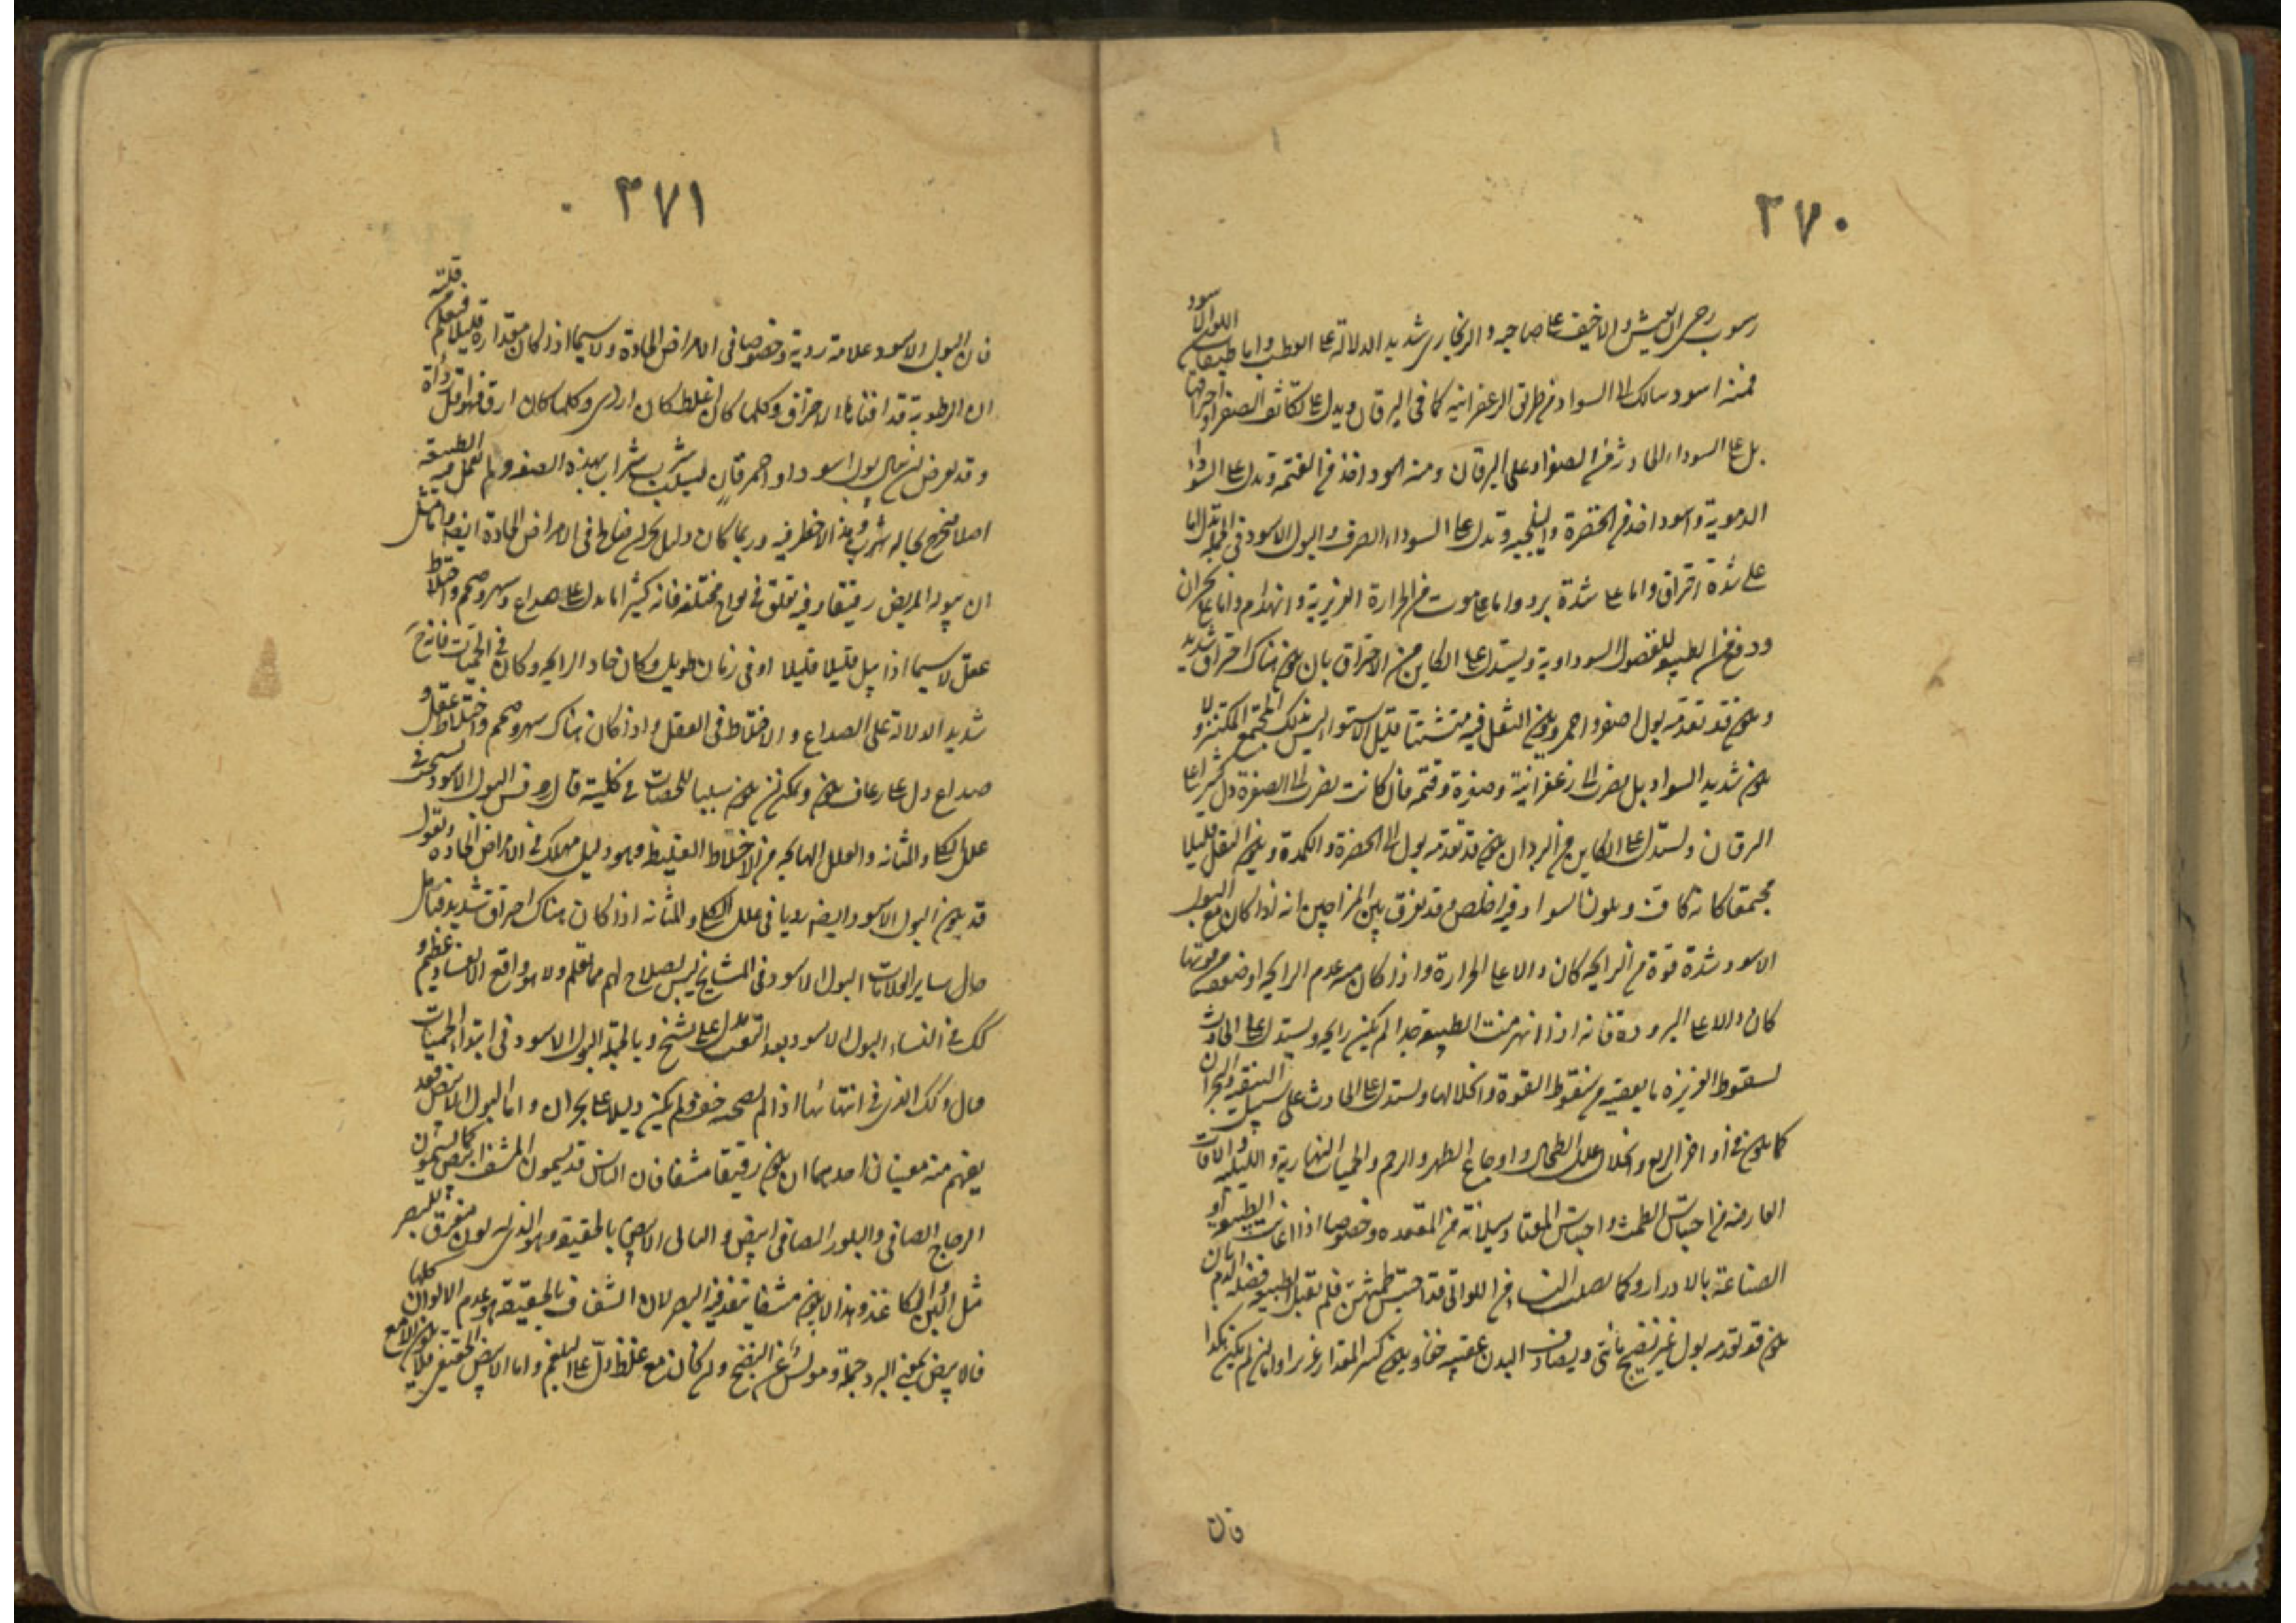 ٣٧٠
رسوب رجى ان يعيش والا خيف على صاحبه والزنجارى شديد الدلالة على العطب واما طبقات اللون الاسود
فمنه اسود سالك الى السواد من طريق الزعفرانية كما فى اليرقان ويدل على تكاثف الصفراء واحراقها
بل على السوداء الحادثة من الصفراء وعلى اليرقان ومنه اسود اخذ من القتمة وتدل على السوداء
الدموية واسود اخذ من الخضرة والنيلنجية وتدل على السوداء الصرف والبول الاسود فى الجملة يدل اما
على شدة احتراق واما على شدة برد واما على موت من الحرارة الغريزية وانهزام واما على بحران
ودفع من الطبيعة للفضول السوداوية ويستدل على الكاين من الاحتراق بان يكون هناك احتراق شديد
ويكون قد تقدمه بول اصفر واحمر ويكون الثفل فيه متشتتا قليل الاستواء ليس بذلك المجتمع المكتنز ولا
يكون شديد السواد بل يضرب الى زعفرانية وصفرة وقتمة فان كانت تضرب الى الصفرة دل كثيرا على
اليرقان ويستدل على الكاين من البرد ان يكون قد تقدمه بول الى الخضرة والكمدة ويكون الثفل قليلا
مجتمعا كانه جاف ويكون السواد فيه اخلص وقد يفرق بين المزاجين انه اذا كان مع البول
الاسود شدة قوة من الرايحة كان دالا على الحرارة واذا كان معه عدم الرايحة او ضعف من قوتها
كان دالا على البرودة فانه اذا انهزمت الطبيعة جدا لم يكن رايحة ويستدل على الحادث
لسقوط الغريزة بما يعقبه من سقوط القوة وانحلالها ويستدل على الحادث على سبيل التنقية والبحران
كما يكون فى اواخر الربع وانحلال علل الطحال واوجاع الظهر والرحم والحميات النهارية والليلية والافات
العارضة من احتباس الطمث واحتباس المعتاد سيلانه من المقعدة وخصوصا اذا اعانت الطبيعة او
الصناعة بالادرار وكما يصيب النساء اللواتى قد احتبس طمثهن فلم تقبل الطبيعة فضلة الدم بان
يكون قد تقدمه بول غير نضيج مائى ويصادف البدن عقيبه خفا ويكون كثير المقدار غزيرا واما ان لم يكن هكذا
فان
٣٧١
فان البول الاسود علامة ردية وخصوصا فى الامراض الحادة ولا سيما اذا كان مقداره قليلا فيعلم من قلته
ان الرطوبة قد افناها الاحتراق وكلما كان اغلظ كان اردى وكلما كان ارق فهو اقل رداة
وقد يعرض ان يبال بول اسود او احمر قان بسبب شرب شراب بهذه الصفة ولم تعمل فيه الطبيعة
اصلا فخرج بحاله وهذا لا خطر فيه وربما كان دليل بحران صالح فى الامراض الحادة ايضا مثل
ان يبوله المريض رقيقا وفيه تعلق فى نواح مختلفة فانه كثيرا ما يدل على صداع وسهر وصمم واختلاط
عقل لا سيما اذا بيل قليلا قليلا او فى زمان طويل وكان حاد الرايحة وكان فى الحميات فانه ح
شديد الدلالة على الصداع والاختلاط فى العقل واذا كان هناك سهر وصمم واختلاط عقل و
صداع دل على رعاف يكون ويمكن ان يكون سببا للحصات فى كليته قال روفس البول الاسود يستحب فى
علل الكلا والمثانة والعلل الهايجة من الاخلاط الغليظة وهو دليل مهلك فى الامراض الحادة ونقول
قد يكون البول الاسود ايضا رديا فى علل الكلا والمثانة اذا كان هناك احتراق شديد فتأمل
حال ساير العلامات البول الاسود فى المشايخ ليس يصلح لهم مما تعلم ولا هو واقع الا لفساد عظيم و
كك فى النساء البول الاسود بعد التعب يدل على تشنج وبالجملة البول الاسود فى ابتداء الحميات
قتال وكك الذى فى انتهائها اذا لم يصحبه خف ولم يكن دليلا على بحران واما البول الابيض فقد
يفهم منه معنيان احدهما ان يكون رقيقا مشفا فان الناس قد يسمون المشف ابيض كما يسمون
الزجاج الصافى والبلور الصافى ابيض والثانى الابيض بالحقيقة وهو الذى له لون مفرق للبصر
مثل اللبن والكاغذ وهذا لا يكون مشفا ينفذ فيه البصر لان الشفاف بالحقيقة هو عدم الالوان كلها
فالابيض بمعنى المشف دليل على البرد جملة ومويس عن النضج وان كان مع غلظ دل على البلغم واما الابيض الحقيقى فلا يكون الا مع